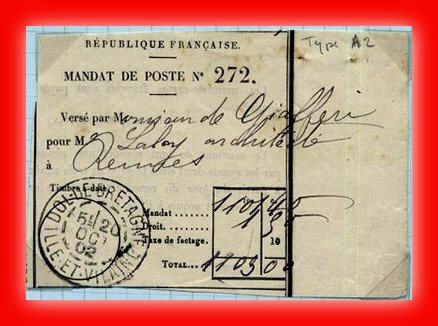 Type A2
RÉPUBLIQUE FRANÇAISE.
MANDAT DE POSTE Nº 272.
Versé par Monsieur de Giafferi
pour M. Laloy architecte
à Rennes
Timbre à date
DOL-DE-BRETAGNE
5E 20
OCT
02
ILLE-ET-VILAINE
Mandat
Droit
Taxe de factage. 10
TOTAL 1103 00